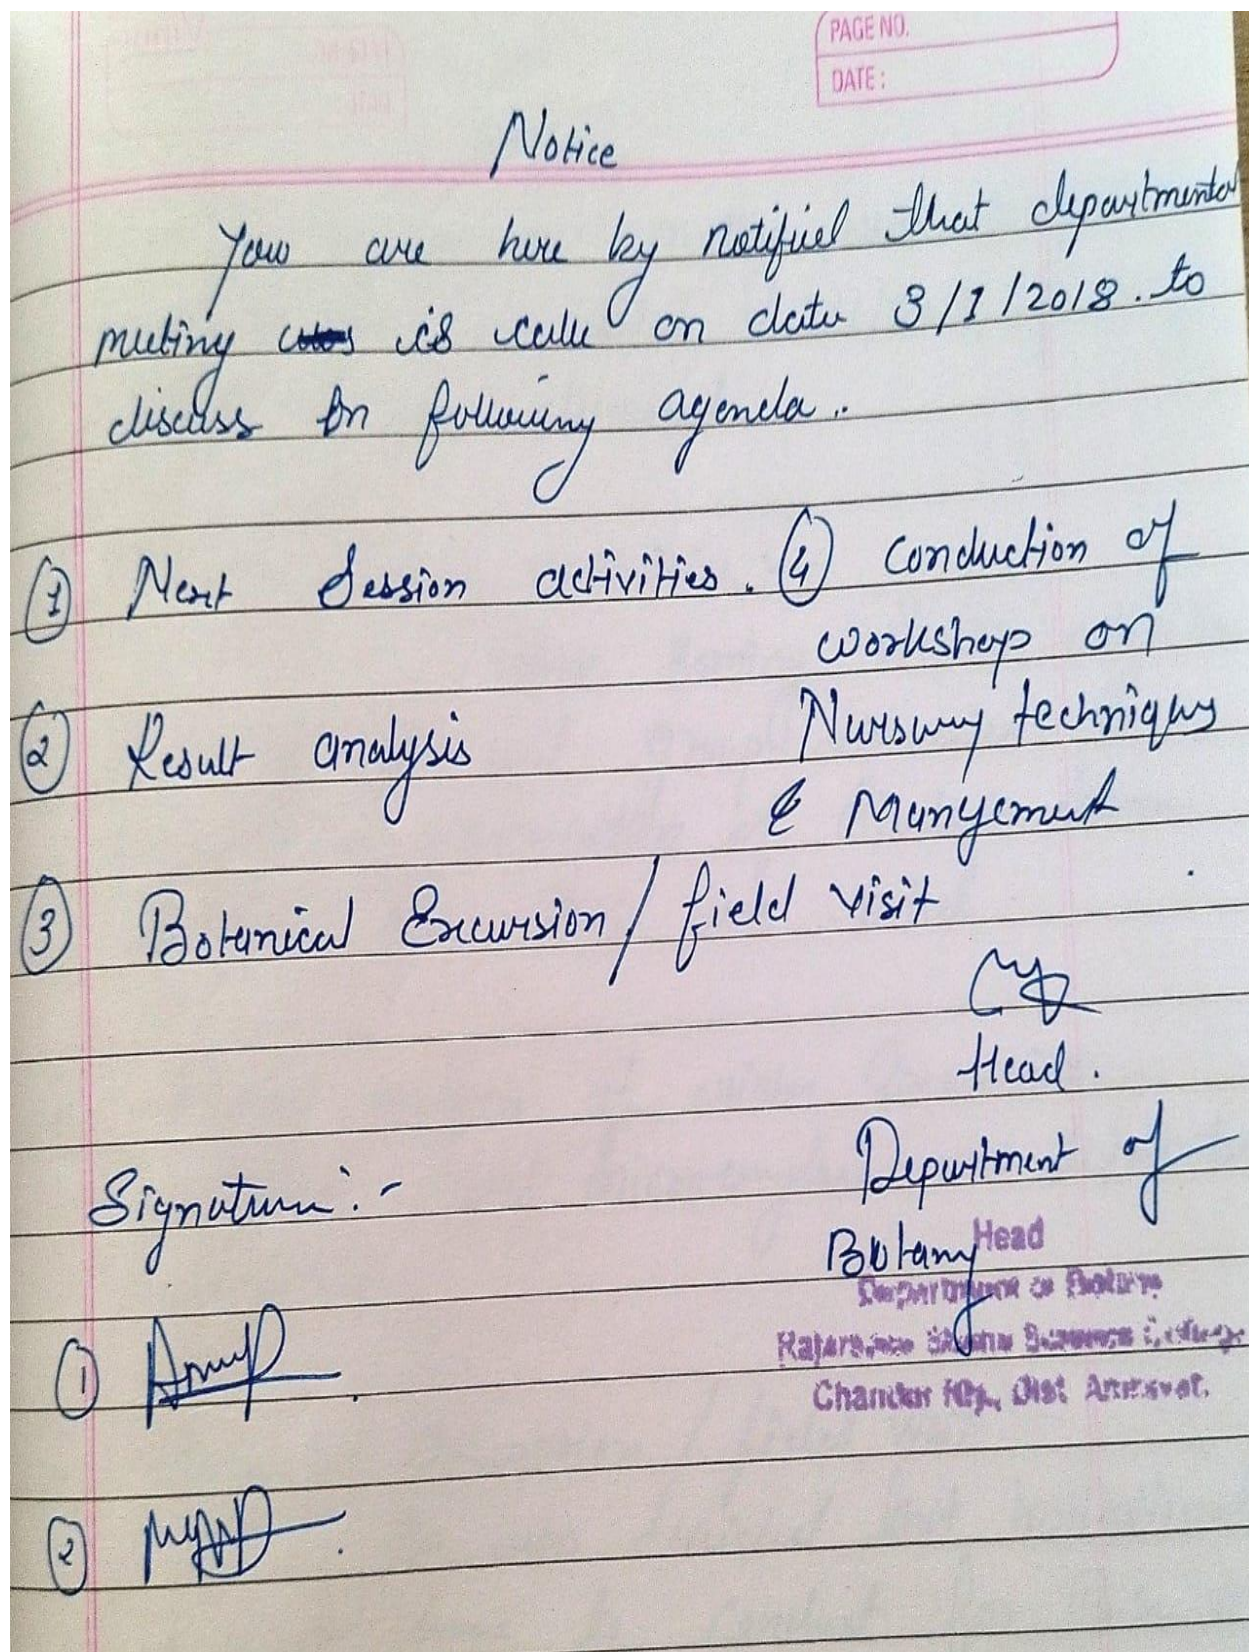 PAGE NO.
DATE :
Notice
You are here by notified that departmental
meeting is call on date 3/1/2018. to
discuss on following agenda..
① Next Session activities.
② Result analysis
③ Botanical Excursion / field visit
④ Conduction of
workshop on
Nursury techniques
& Mangement
Head.
Department of
Botany
Signature :-
①
②
Head
Department of Botany
Science College
Chandur Rly., Dist Amravati.